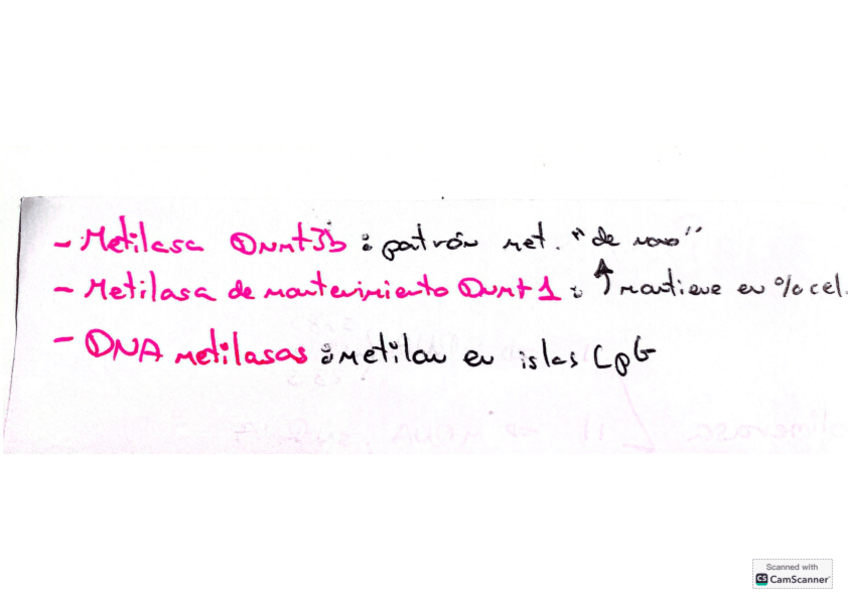 - Metilasa Dnmt3b : patrón met. "de novo"
- Metilasa de mantenimiento Dnmt1 : ↑ mantiene en % cel.
- DNA metilasas : metilan en islas CpG
Scanned with
CS CamScanner